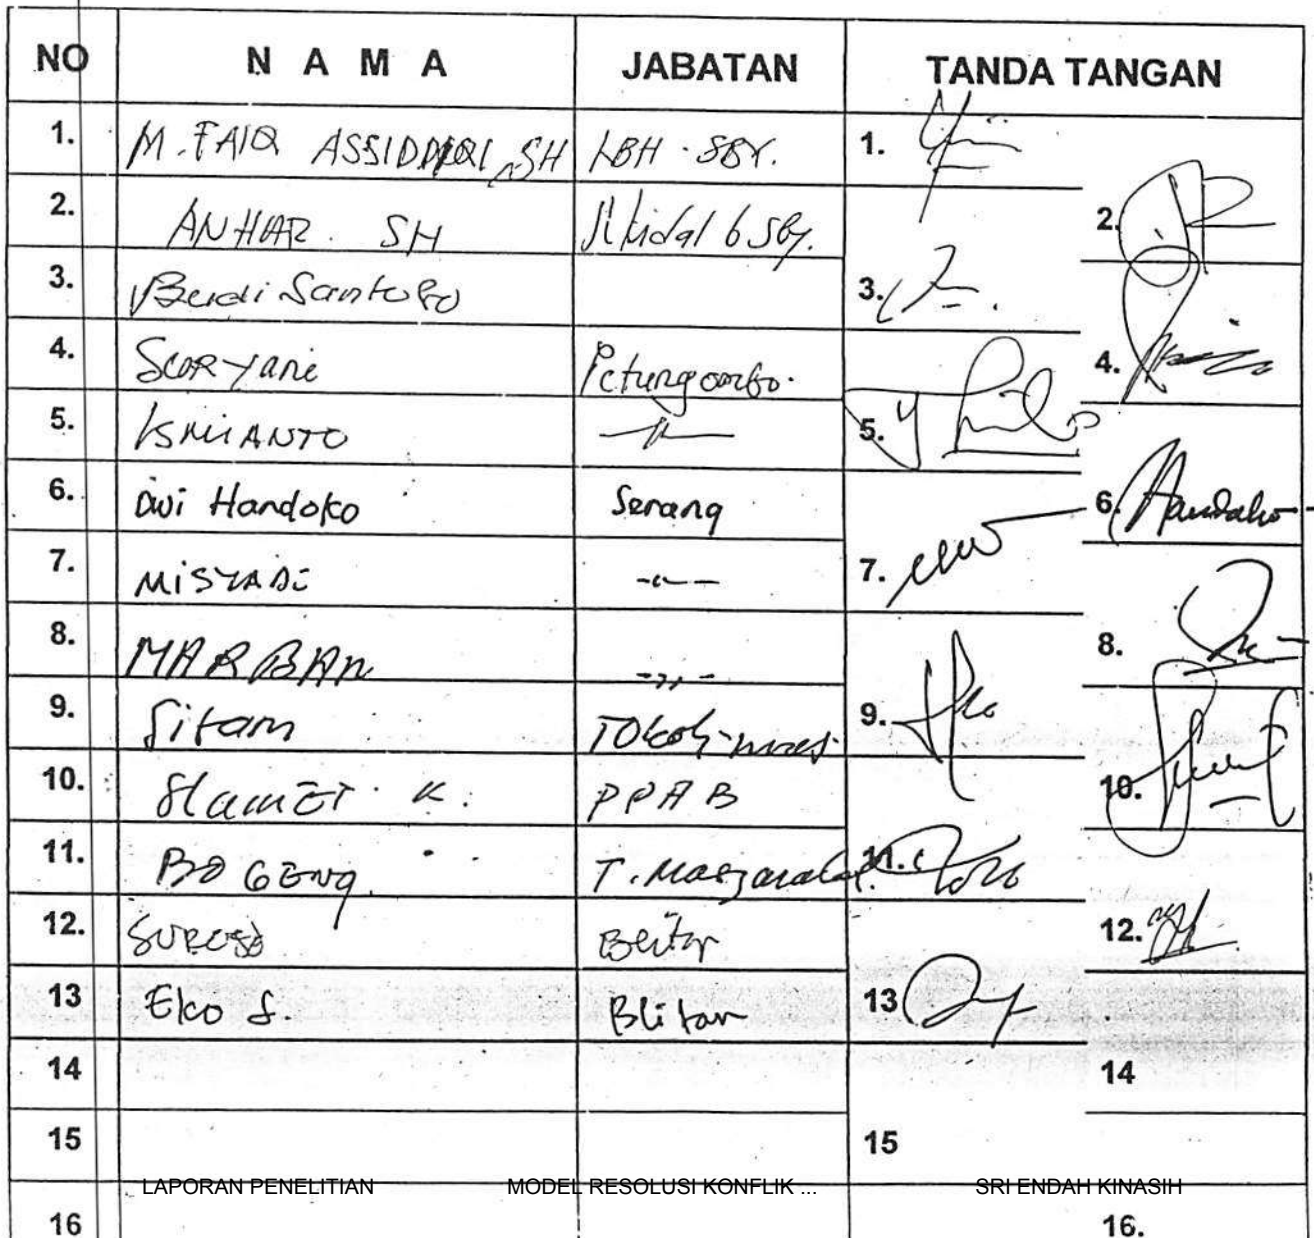 NO N A M A JABATAN TANDA TANGAN
1. M. FAIQ ASSIDDIQI, SH LBH - SBY. 1.
2. ANHAR. SH Jl kidal 6 Sby. 2.
3. Budi Santoso 3.
4. Suryani Petungombo. 4.
5. ISMIANTO 5.
6. Dwi Handoko Serang 6. Handoko
7. MISYADI -"- 7.
8. MARBAN -"- 8.
9. Sitam TOkoh 9.
10. Slamet K. PPAB 10.
11. BOGENG T. Masyarakat. 11.
12. SUROSO Blitar 12.
13 Eko S. Blitar 13
14 14
15 15
LAPORAN PENELITIAN MODEL RESOLUSI KONFLIK ... SRI ENDAH KINASIH
16 16.